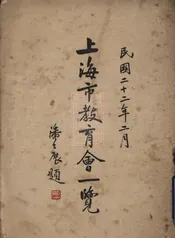 民國二十二年二月
上海市教育會一覽
潘公展題